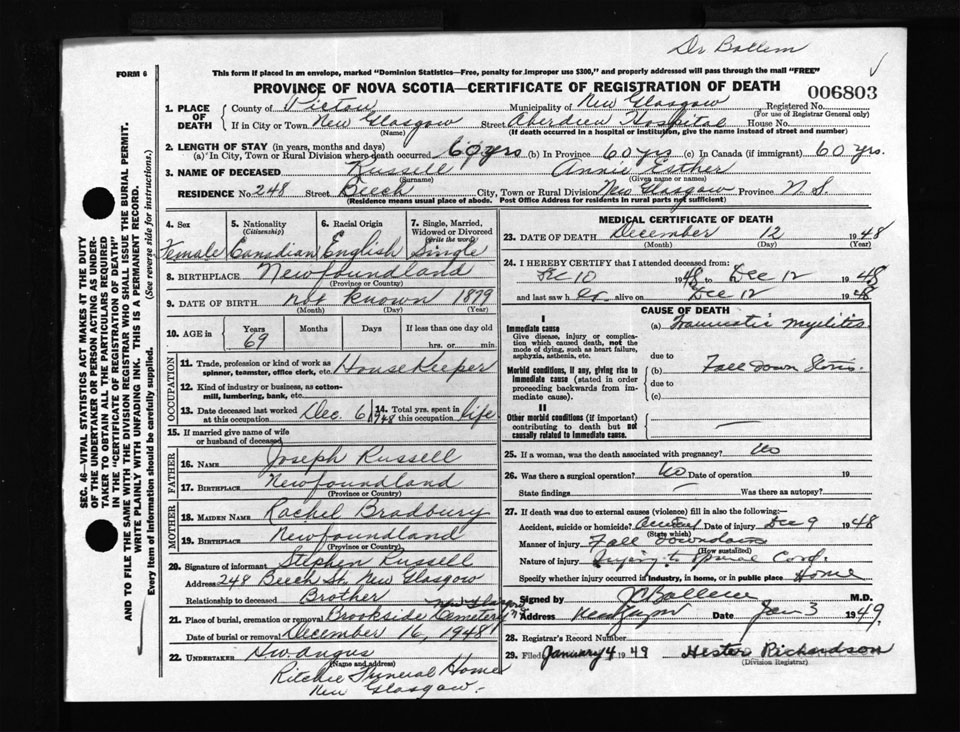 Dr Ballem
FORM 6
This form if placed in an envelope, marked "Dominion Statistics—Free, penalty for improper use $300," and properly addressed will pass through the mail "FREE"
PROVINCE OF NOVA SCOTIA—CERTIFICATE OF REGISTRATION OF DEATH
006803
1. PLACE OF DEATH
County of Pictou Municipality of New Glasgow Registered No.
(For use of Registrar General only)
If in City or Town New Glasgow Street Aberdeen Hospital House No.
(Name) (If death occurred in a hospital or institution, give the name instead of street and number)
2. LENGTH OF STAY (in years, months and days)
(a) In City, Town or Rural Division where death occurred 60 yrs (b) In Province 60 yrs (c) In Canada (if immigrant) 60 yrs.
3. NAME OF DECEASED Russell Annie Esther
(Surname) (Given name or names)
RESIDENCE No 248 Street Beech City, Town or Rural Division New Glasgow Province N.S.
(Residence means usual place of abode. Post Office Address for residents in rural parts not sufficient)
4. Sex
Female
5. Nationality
(Citizenship)
Canadian
6. Racial Origin
English
7. Single, Married,
Widowed or Divorced
(write the word)
Single
8. BIRTHPLACE Newfoundland
(Province or Country)
9. DATE OF BIRTH not known 1879
(Month) (Day) (Year)
10. AGE in Years Months Days If less than one day old
69 hrs. or min.
OCCUPATION
11. Trade, profession or kind of work as
spinner, teamster, office clerk, etc. House Keeper
12. Kind of industry or business, as cotton-
mill, lumbering, bank, etc.
13. Date deceased last worked
at this occupation Dec 6 1948
14. Total yrs. spent
in this occupation life
15. If married give name of wife
or husband of deceased
FATHER
16. NAME Joseph Russell
17. BIRTHPLACE Newfoundland
(Province or Country)
MOTHER
18. MAIDEN NAME Rachel Bradbury
19. BIRTHPLACE Newfoundland
(Province or Country)
20. Signature of informant Stephen Russell
Address 248 Beech St. New Glasgow
Relationship to deceased Brother
21. Place of burial, cremation or removal Brookside Cemetery New Glasgow N.S.
Date of burial or removal December 16, 1948
22. UNDERTAKER
(Name and address)
Ritchie Funeral Home
New Glasgow.
MEDICAL CERTIFICATE OF DEATH
23. DATE OF DEATH December 12 1948
(Month) (Day) (Year)
24. I HEREBY CERTIFY that I attended deceased from:
Dec 10 1948 to Dec 12 1948
and last saw her alive on Dec 12 1948
CAUSE OF DEATH
I
Immediate cause
Give disease, injury or complica-
tion which caused death, not the
mode of dying, such as heart failure,
asphyxia, asthenia, etc.
(a) Traumatic myelitis
due to
Morbid conditions, if any, giving rise to
immediate cause (stated in order
proceeding backwards from im-
mediate cause).
(b) Fall down Stairs
due to
(c)
II
Other morbid conditions (if important)
contributing to death but not
causally related to immediate cause.
25. If a woman, was the death associated with pregnancy? no
26. Was there a surgical operation? No Date of operation 19
State findings Was there an autopsy?
27. If death was due to external causes (violence) fill in also the following:—
Accident, suicide or homicide? Date of injury Dec 9 1948
(State which)
Manner of injury Fall downstairs
(How sustained)
Nature of injury Injury to spinal Cord
Specify whether injury occurred in industry, in home, or in public place Home
Signed by J C Ballem M.D.
Address New Glasgow Date Jan 3 1949.
28. Registrar's Record Number
29. Filed January 4 1949 Hester Richardson
(Division Registrar)
SEC. 46—VITAL STATISTICS ACT MAKES IT THE DUTY
OF THE UNDERTAKER OR PERSON ACTING AS UNDER-
TAKER TO OBTAIN ALL THE PARTICULARS REQUIRED
IN THE "CERTIFICATE OF REGISTRATION OF DEATH"
AND TO FILE THE SAME WITH THE DIVISION REGISTRAR WHO SHALL ISSUE THE BURIAL PERMIT.
WRITE PLAINLY WITH UNFADING INK. THIS IS A PERMANENT RECORD.
Every item of information should be carefully supplied. (See reverse side for instructions.)